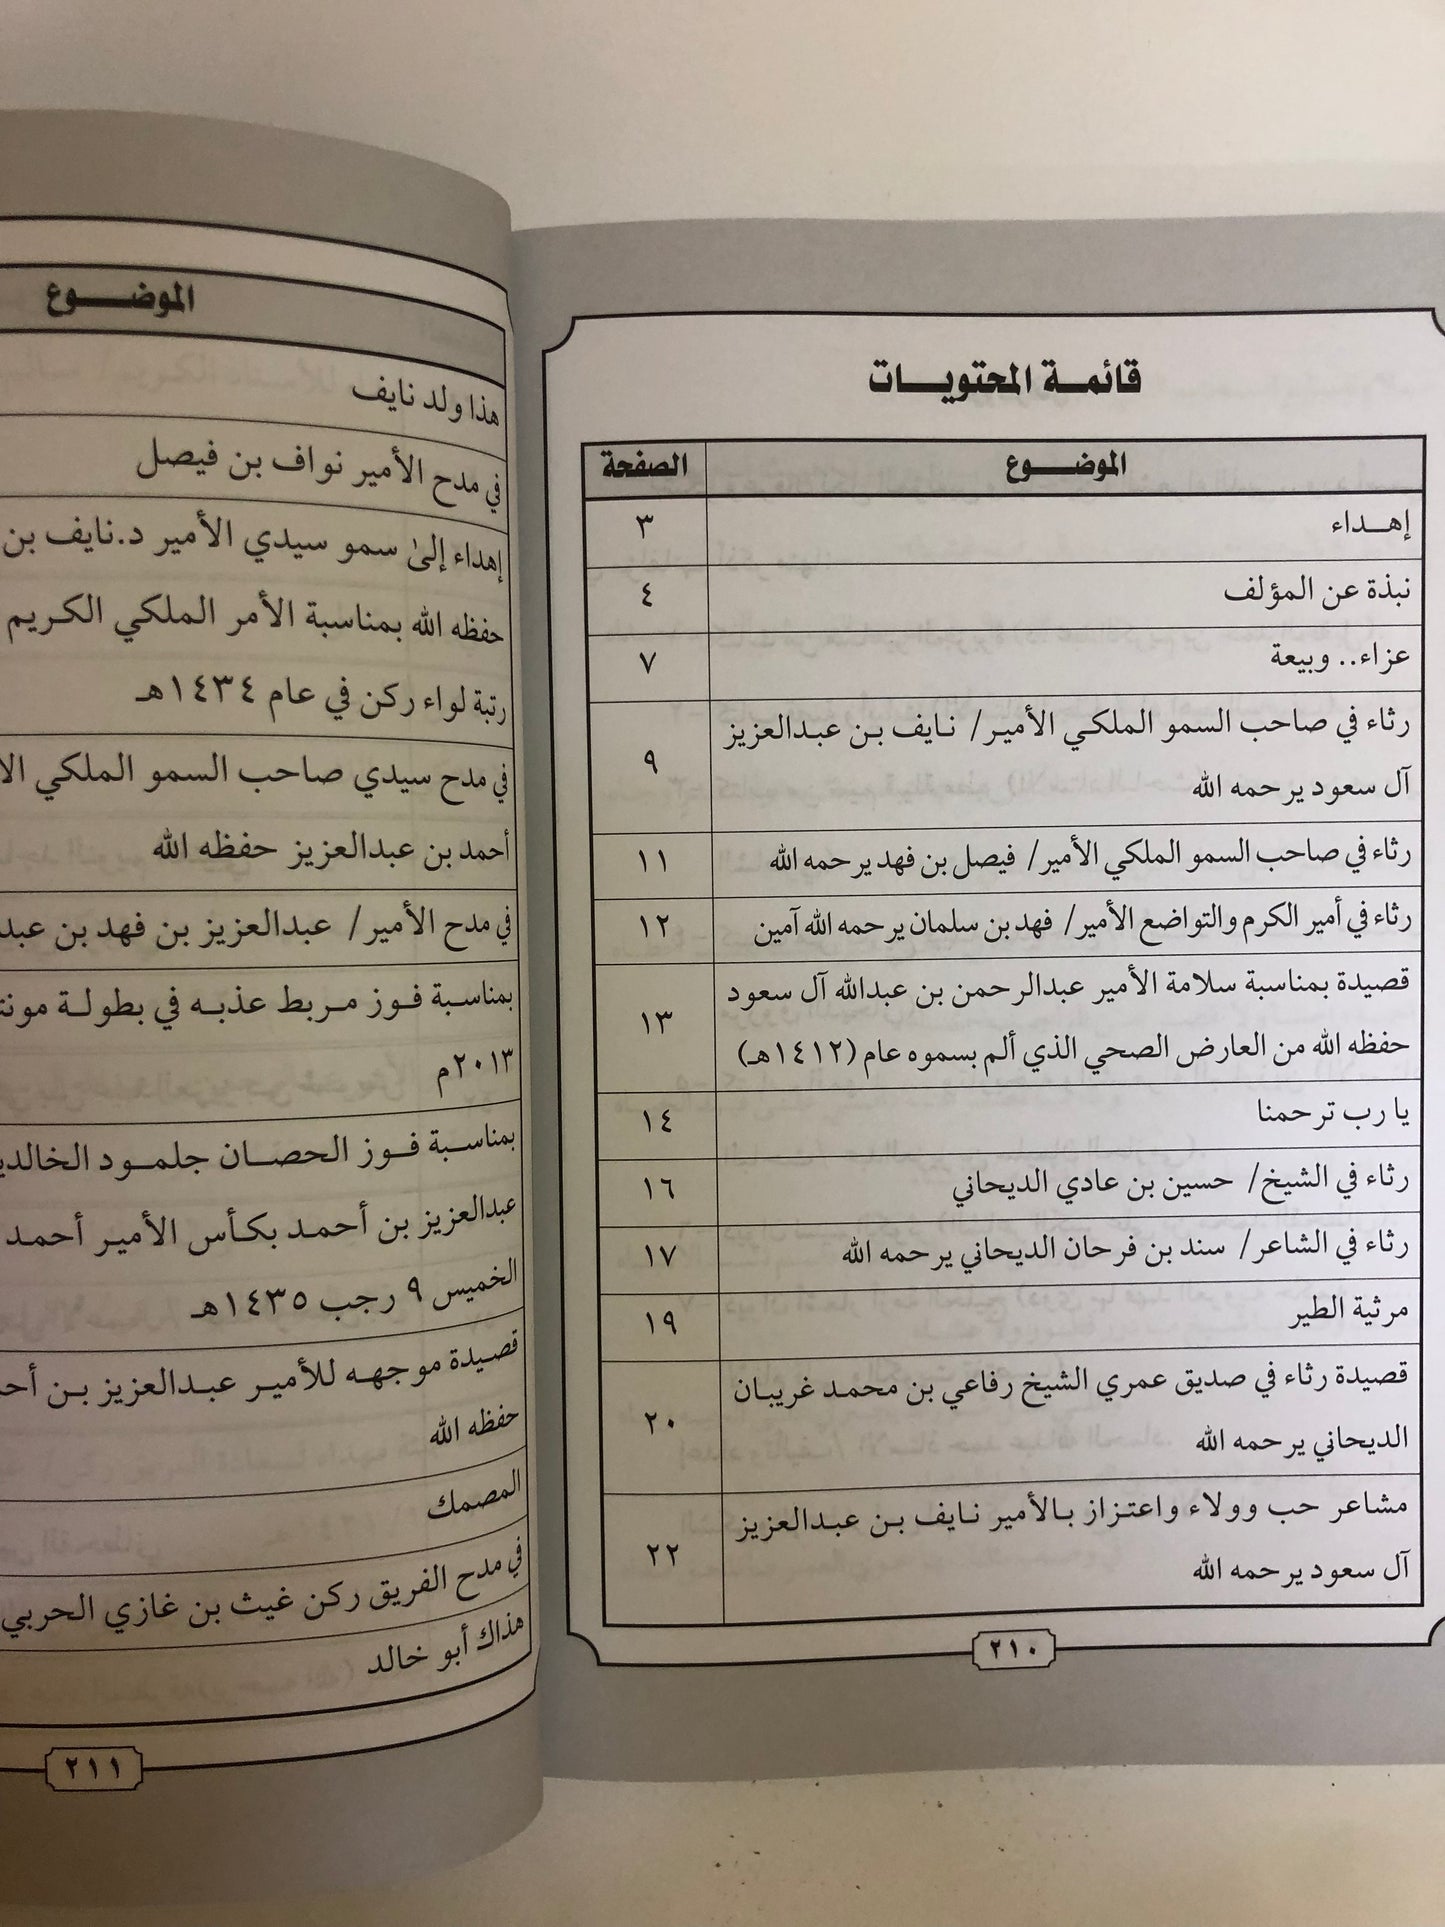 قائمة المحتويات
الموضوع الصفحة
إهداء ٣
نبذة عن المؤلف ٤
عزاء.. وبيعة ٧
رثاء في صاحب السمو الملكي الأمير/ نايف بن عبدالعزيز
آل سعود يرحمه الله ٩
رثاء في صاحب السمو الملكي الأمير/ فيصل بن فهد يرحمه الله ١١
رثاء في أمير الكرم والتواضع الأمير/ فهد بن سلمان يرحمه الله آمين ١٢
قصيدة بمناسبة سلامة الأمير عبدالرحمن بن عبدالله آل سعود
حفظه الله من العارض الصحي الذي ألم بسموه عام (١٤١٢هـ) ١٣
يا رب ترحمنا ١٤
رثاء في الشيخ/ حسين بن عادي الديحاني ١٦
رثاء في الشاعر/ سند بن فرحان الديحاني يرحمه الله ١٧
مرثية الطير ١٩
قصيدة رثاء في صديق عمري الشيخ رفاعي بن محمد غريبان
الديحاني يرحمه الله ٢٠
مشاعر حب وولاء واعتزاز بالأمير نايف بن عبدالعزيز
آل سعود يرحمه الله ٢٢
٢١٠
الموضوع
هذا ولد نايف
في مدح الأمير نواف بن فيصل
إهداء إلىٰ سمو سيدي الأمير د.نايف بن
حفظه الله بمناسبة الأمر الملكي الكريم
رتبة لواء ركن في عام ١٤٣٤هـ
في مدح سيدي صاحب السمو الملكي
أحمد بن عبدالعزيز حفظه الله
في مدح الأمير/ عبدالعزيز بن فهد بن
بمناسبة فوز مربط عذبه في بطولة
٢٠١٣م
بمناسبة فوز الحصان جلمود
عبدالعزيز بن أحمد بكأس الأمير أحمد
الخميس ٩ رجب ١٤٣٥هـ
قصيدة موجهه للأمير عبدالعزيز بن
حفظه الله
المصمك
في مدح الفريق ركن غيث بن غازي الحربي
هذاك أبو خالد
٢١١